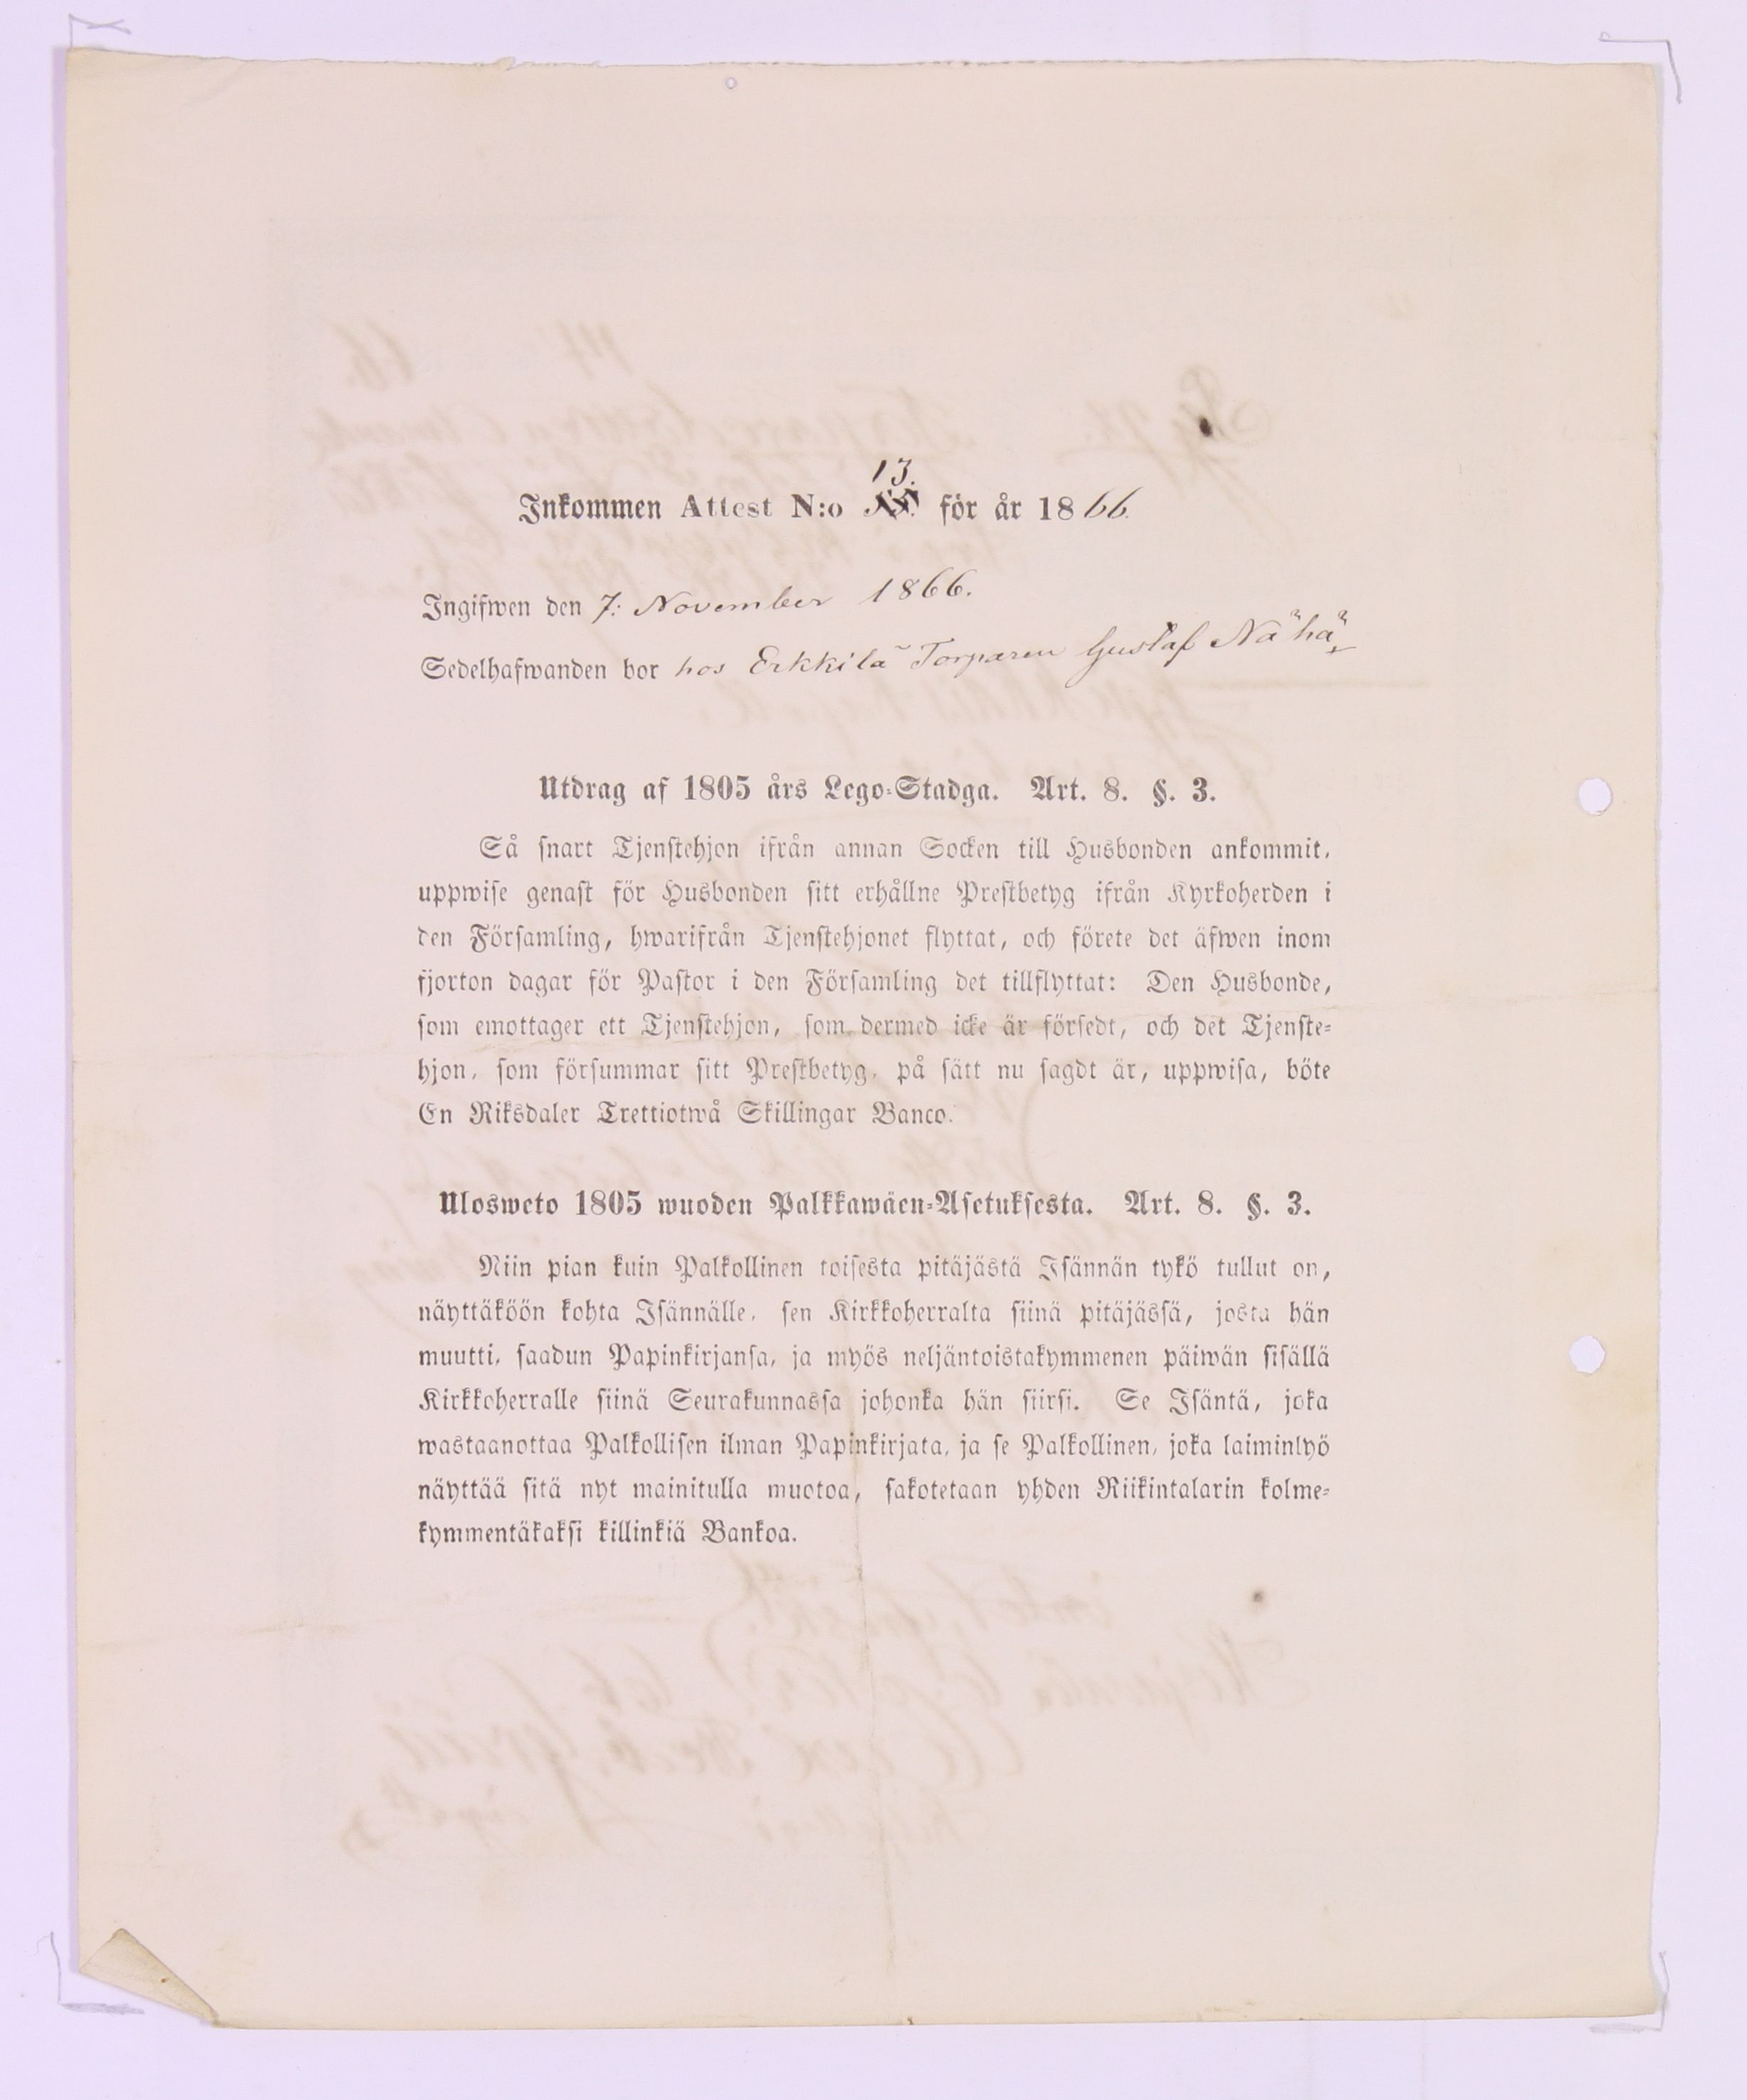 13.
Inkommen Attest N:o för år 1866.
Ingifwen den 7. November 1866.
Sedelhafwanden bor hos Erkkilä Torparen Gustaf Nähä
Utdrag af 1805 års Lego-Stadga. Art. 8. §. 3.
Så snart Tjenstehjon ifrån annan Socken till Husbonden ankommit,
uppwise genast för Husbonden sitt erhållne Prestbetyg ifrån Kyrkoherden i
den Församling, hwarifrån Tjenstehjonet flyttat, och förete det äfwen inom
fjorton dagar för Pastor i den Församling det tillflyttat: Den Husbonde,
som emottager ett Tjenstehjon, som dermed icke är försedt, och det Tjenste-
hjon, som försummar sitt Prestbetyg, på sätt nu sagdt är, uppwisa, böte
En Riksdaler Trettiotwå Skillingar Banco.
Ulosweto 1805 wuoden Palkkawäen-Asetuksesta. Art. 8. §. 3.
Niin pian kuin Palkollinen toisesta pitäjästä Isännän tykö tullut on,
näyttäköön kohta Isännälle, sen Kirkkoherralta siinä pitäjässä, josta hän
muutti, saadun Papinkirjansa, ja myös neljäntoistakymmenen päiwän sisällä
Kirkkoherralle siinä Seurakunnassa johonka hän siirsi. Se Isäntä, joka
wastaanottaa Palkollisen ilman Papinkirjata, ja se Palkollinen, joka laiminlyö
näyttää sitä nyt mainitulla muotoa, sakotetaan yhden Riikintalarin kolme-
kymmentäkaksi killinkiä Bankoa.